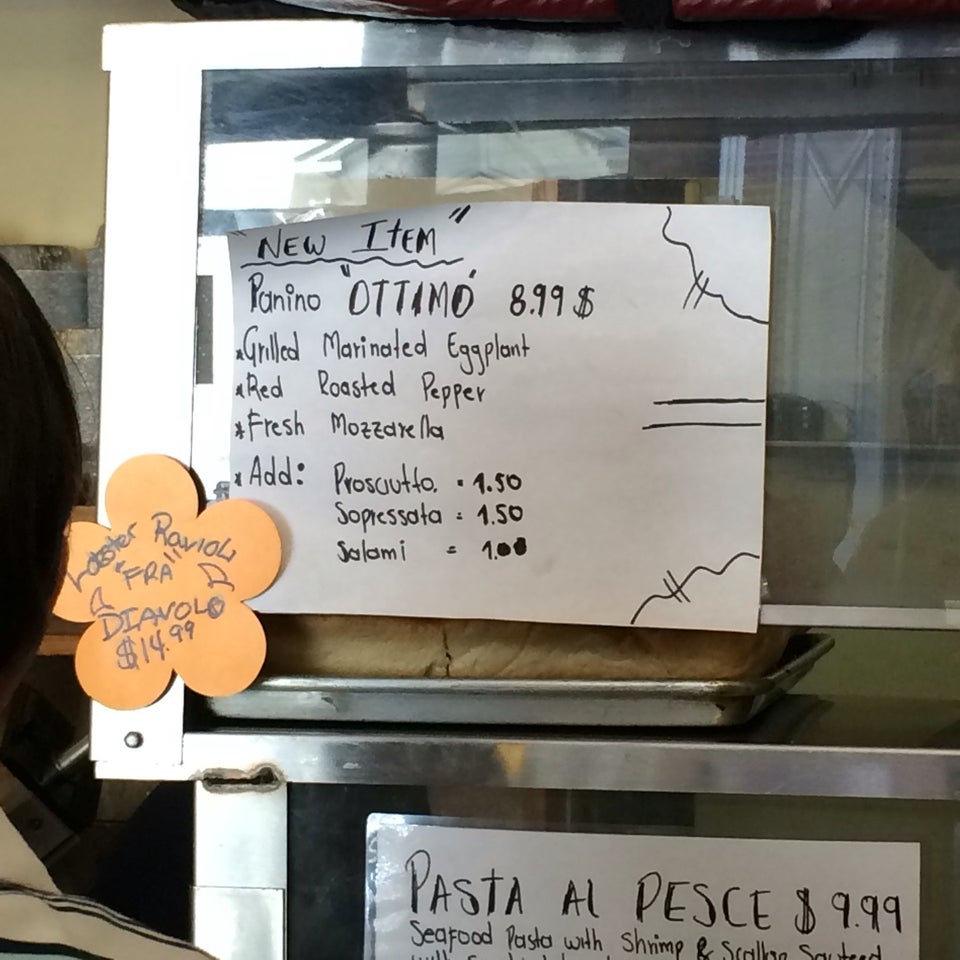 "NEW ITEM"
Panino "OTTIMO" 8.99 $
*Grilled Marinated Eggplant
*Red Roasted Pepper
*Fresh Mozzarella
*Add: Prosciutto. = 1.50
Sopressata = 1.50
Salami = 1.00
Lobster Ravioli
"FRA"
DIAVOLO
$14.99
PASTA Al PESCE $ 9.99
Seafood Pasta with Shrimp & Scallop Sauteed